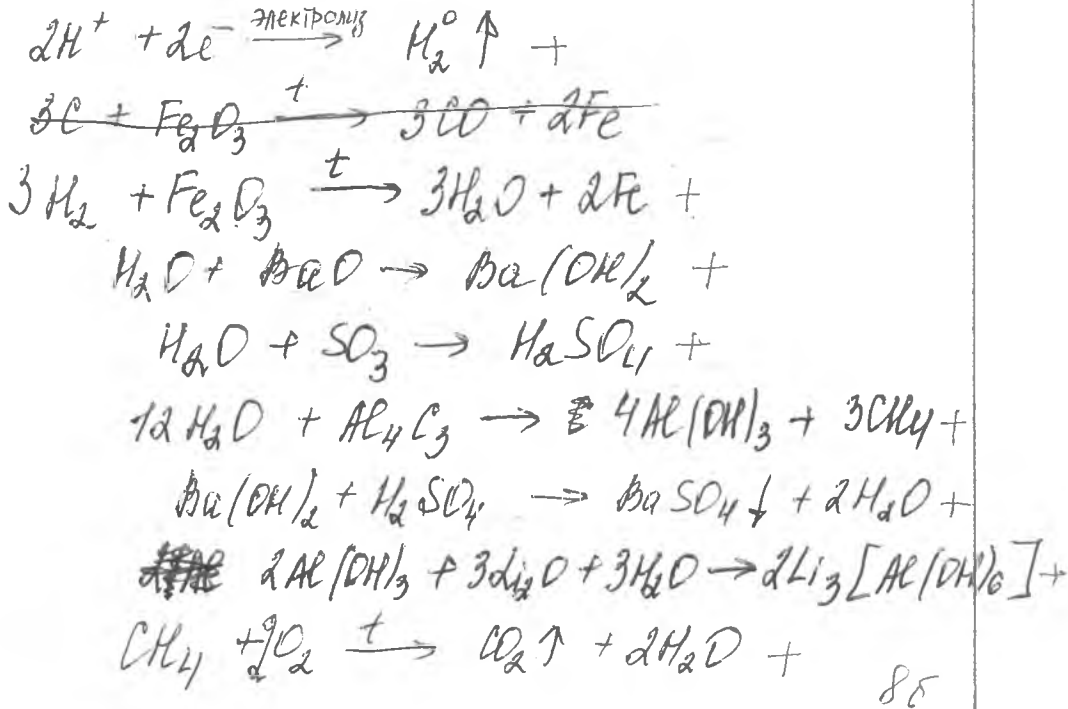 2H⁺ + 2e⁻ электролиз → H₂⁰ ↑ +
3C + Fe₂O₃ t → 3CO + 2Fe
3H₂ + Fe₂O₃ t → 3H₂O + 2Fe +
H₂O + BaO → Ba(OH)₂ +
H₂O + SO₃ → H₂SO₄ +
12H₂O + Al₄C₃ → 4Al(OH)₃ + 3CH₄ +
Ba(OH)₂ + H₂SO₄ → BaSO₄↓ + 2H₂O +
2Al(OH)₃ + 3Li₂O + 3H₂O → 2Li₃[Al(OH)₆] +
CH₄ + 2O₂ t → CO₂↑ + 2H₂O +
8б